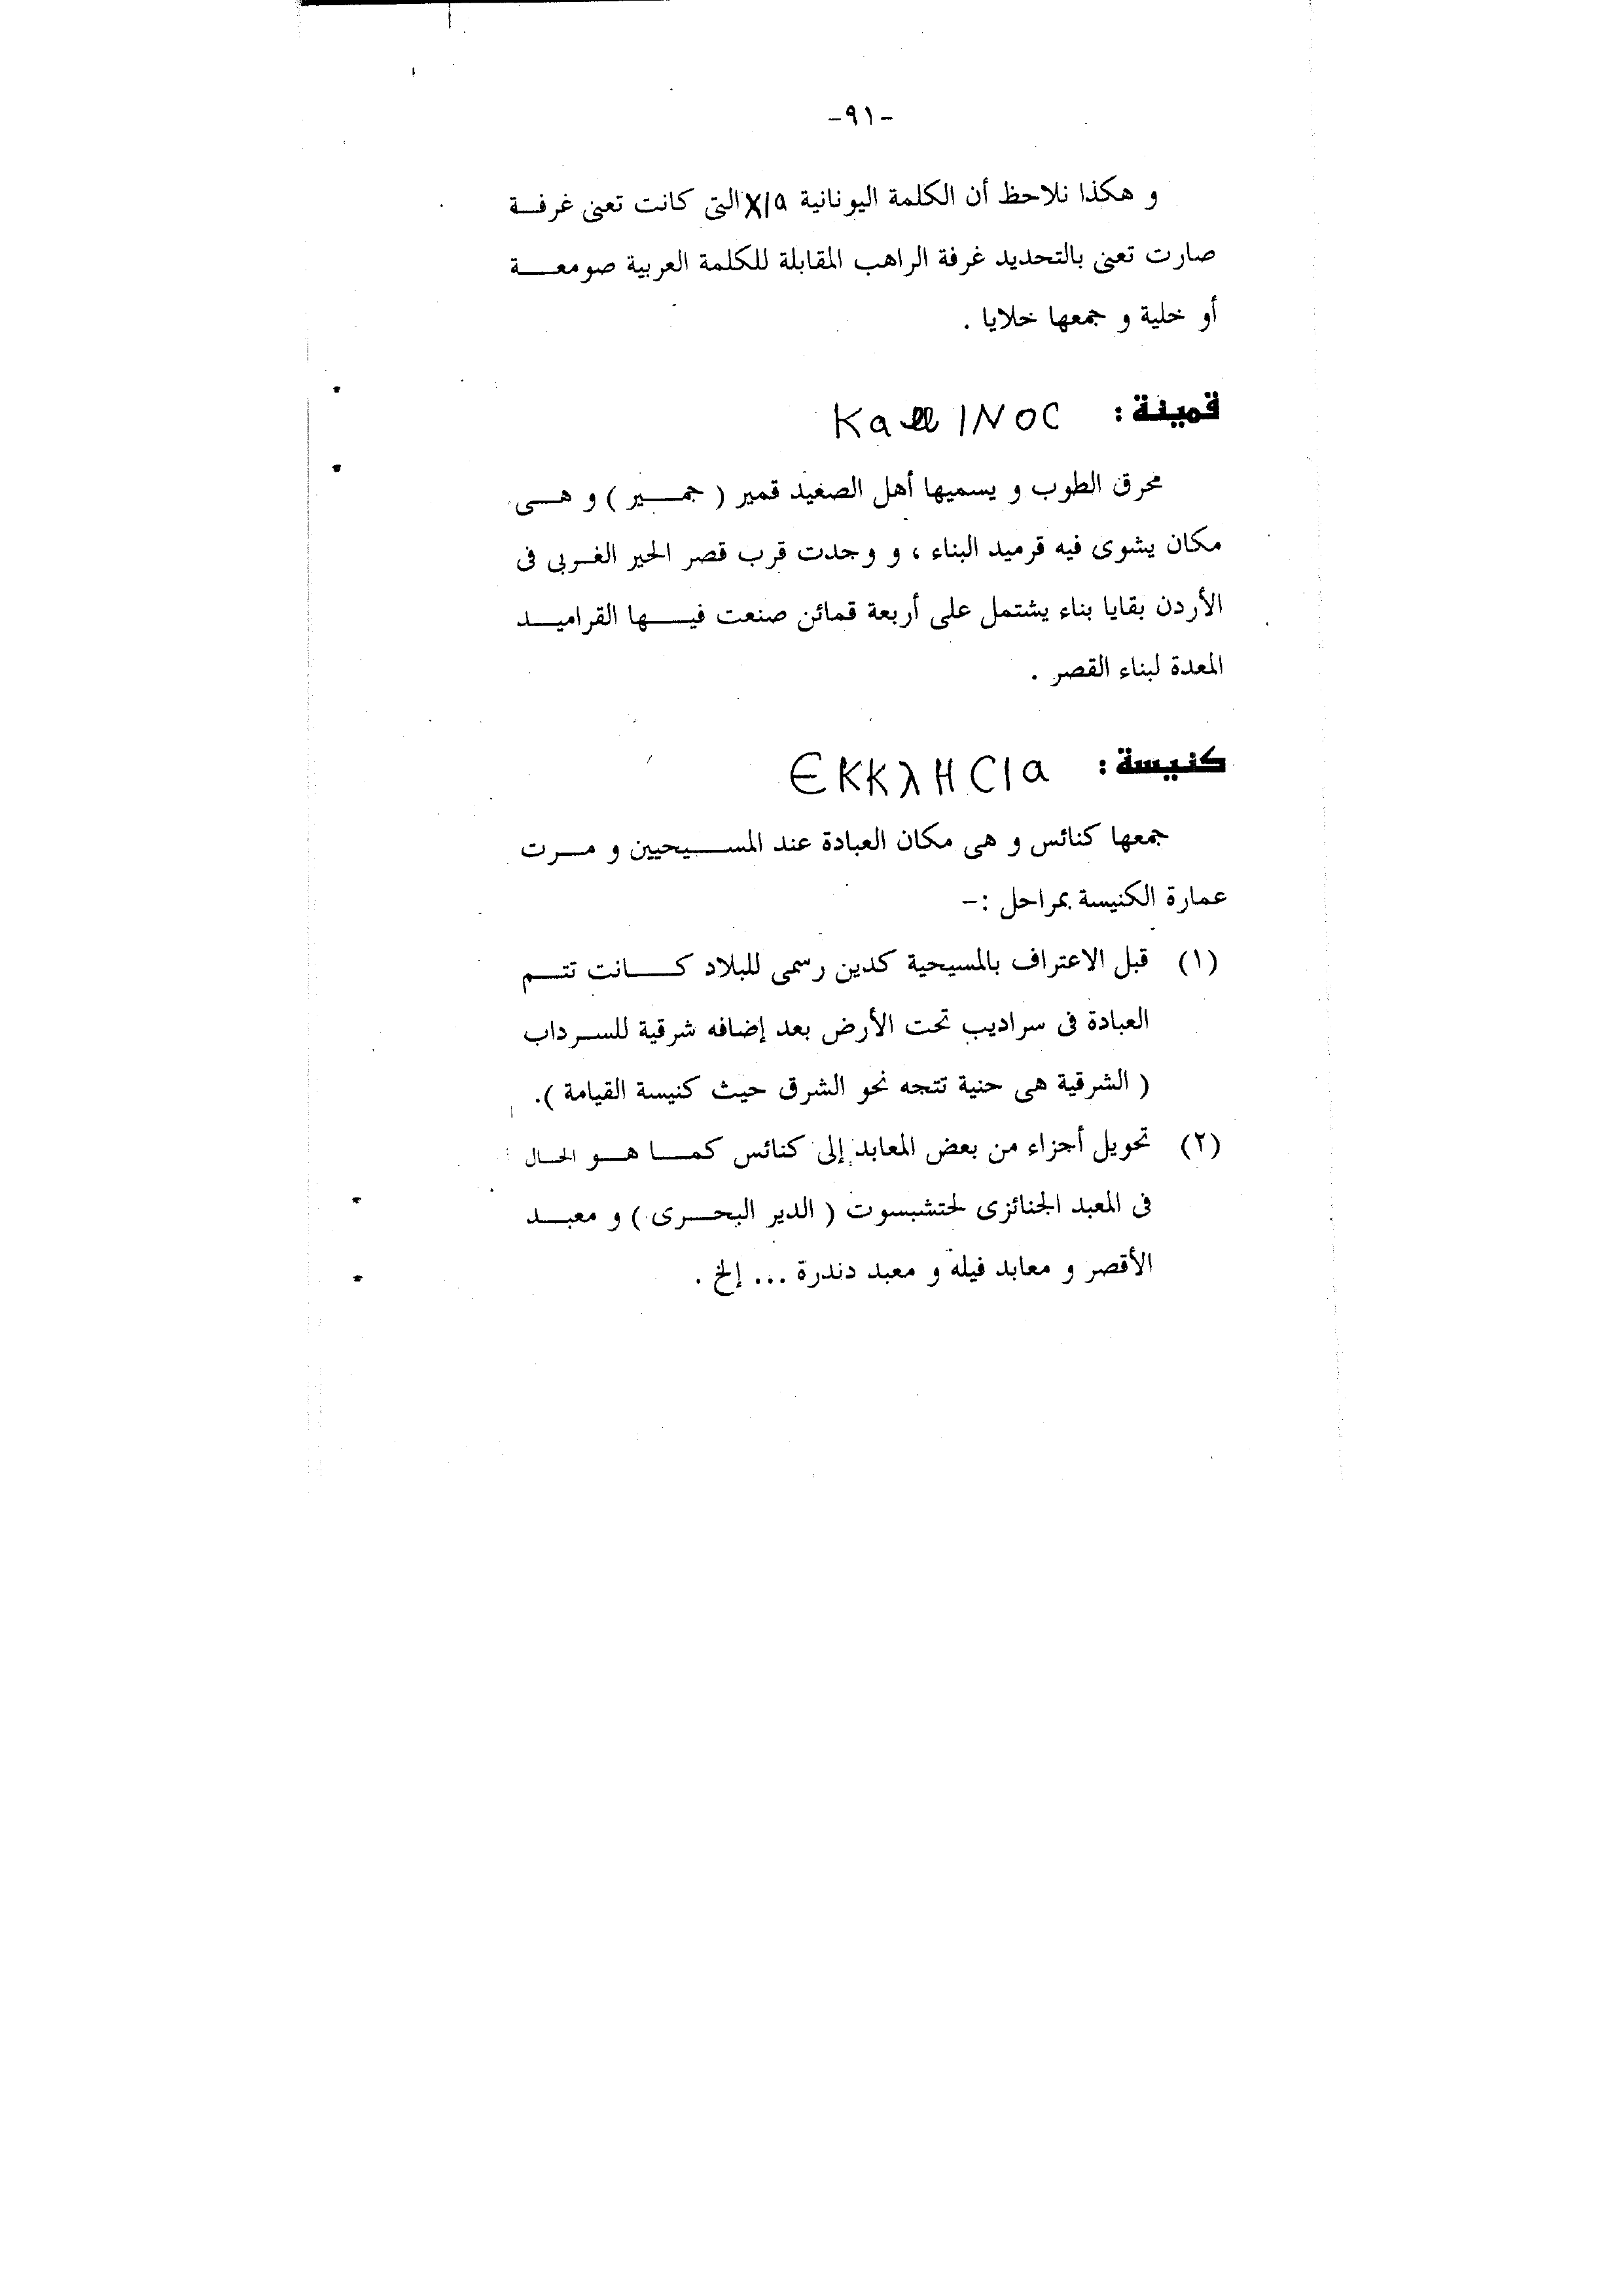 -٩١-
و هكذا نلاحظ أن الكلمة اليونانية χ/α التى كانت تعنى غرفة
صارت تعنى بالتحديد غرفة الراهب المقابلة للكلمة العربية صومعة
أو خلية و جمعها خلايا .
قمينة : ΚαⲙΙΝΟC
محرق الطوب و يسميها أهل الصعيد قمير ( جمير ) و هى
مكان يشوى فيه قرميد البناء ، و وجدت قرب قصر الحير الغربى فى
الأردن بقايا بناء يشتمل على أربعة قمائن صنعت فيها القراميد
المعدة لبناء القصر .
كنيسة : ЄΚΚλΗCΙα
جمعها كنائس و هى مكان العبادة عند المسيحيين و مرت
عمارة الكنيسة بمراحل :-
(١) قبل الاعتراف بالمسيحية كدين رسمى للبلاد كانت تتم
العبادة فى سراديب تحت الأرض بعد إضافه شرقية للسرداب
( الشرقية هى حنية تتجه نحو الشرق حيث كنيسة القيامة ).
(٢) تحويل أجزاء من بعض المعابد إلى كنائس كما هو الحال
فى المعبد الجنائزى لحتشبسوت ( الدير البحرى ) و معبد
الأقصر و معابد فيلة و معبد دندرة ... إلخ .